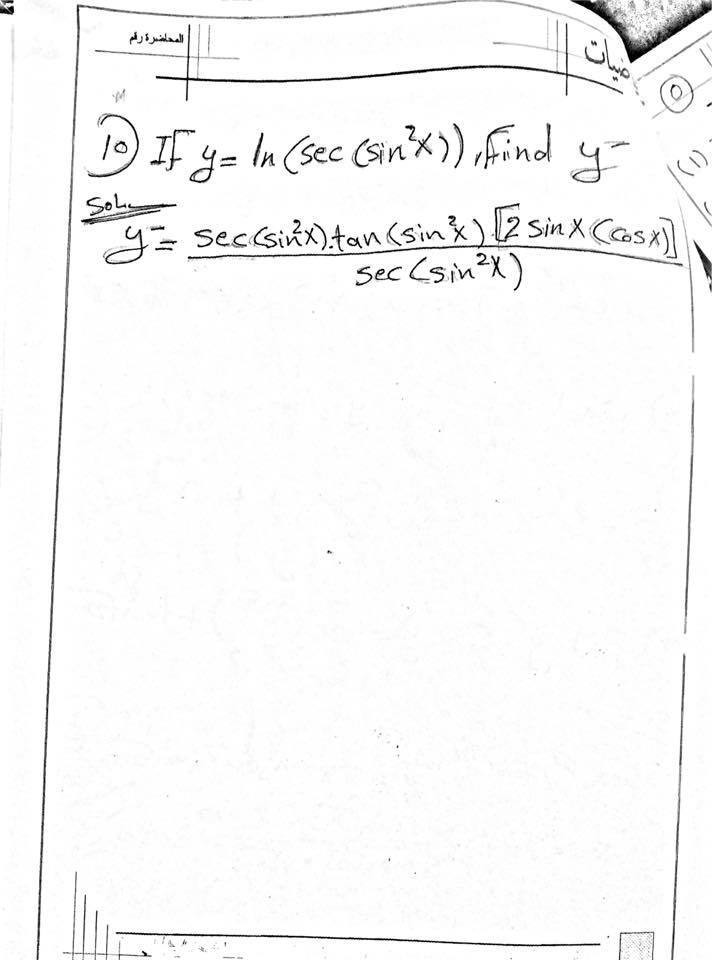 المحاضرة رقم
10) If y = ln (sec (sin²x)), find y⁻
Solu
y⁻ = sec(sin²x).tan(sin²x).[2 sin x (cos x)]
sec (sin²x)
(1)